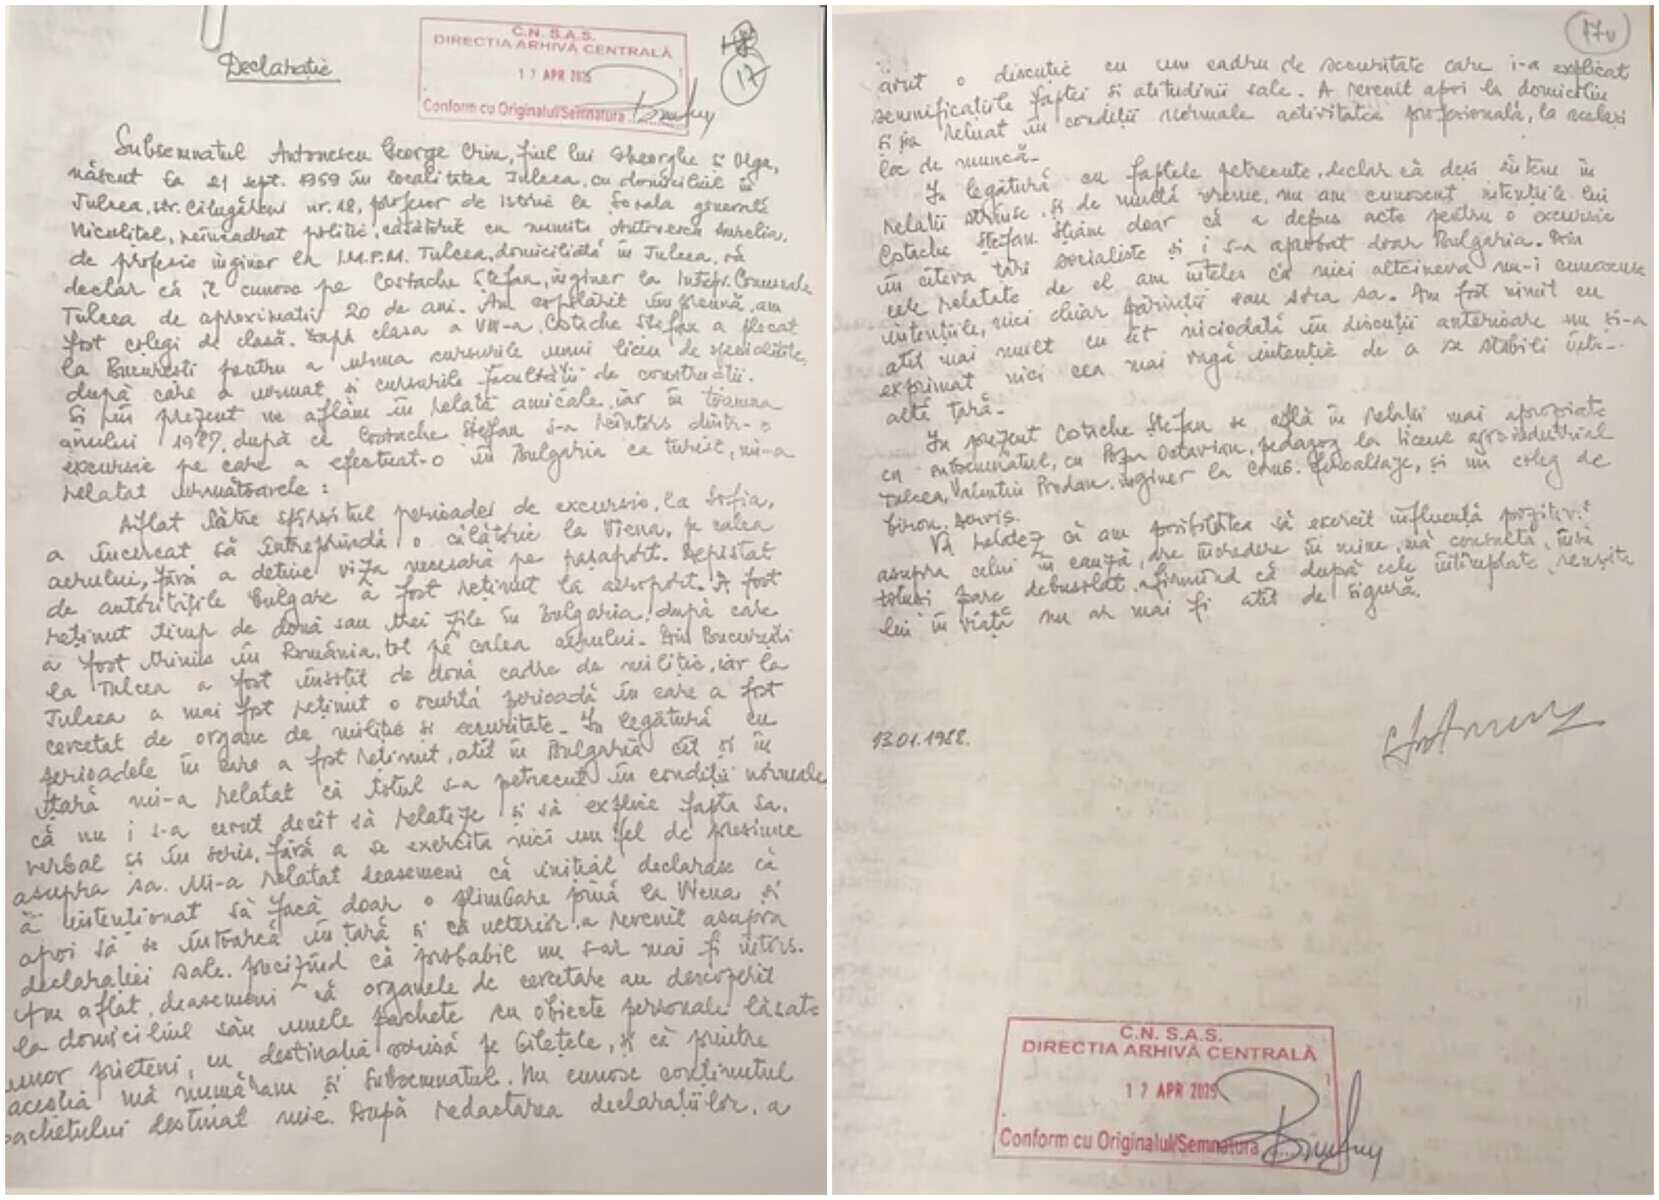 C.N.S.A.S.
DIRECTIA ARHIVĂ CENTRALĂ
17 APR 2025
Conform cu Originalul/Semnatura
17
Declarație
Subsemnatul Antonescu George Crin, fiul lui Gheorghe și Olga,
născut la 21 sept. 1959 în localitatea Tulcea, cu domiciliul în
Tulcea, str. Călugăreni nr. 18, profesor de istorie la Școala generală
Niculițel, neîncadrat politic, căsătorit cu numita Antonescu Aurelia,
de profesie inginer la I.M.P.M. Tulcea, domiciliată în Tulcea, vă
declar că îl cunosc pe Costache Ștefan, inginer la Intepr. Comunale
Tulcea de aproximativ 20 de ani. Am copilărit împreună, am
fost colegi de clasă. După clasa a VIII-a, Costache Ștefan a plecat
la București pentru a urma cursurile unui liceu de specialitate,
după care a urmat și cursurile facultății de construcții.
Și în prezent ne aflăm în relații amicale, iar în toamna
anului 1987, după ce Costache Ștefan s-a reîntors dintr-o
excursie pe care a efectuat-o în Bulgaria ca turist, mi-a
relatat următoarele:
Aflat către sfîrșitul perioadei de excursie, la Sofia,
a încercat să întreprindă o călătorie la Viena, pe calea
aerului, fără a deține viza necesară pe pașaport. Depistat
de autoritățile bulgare a fost reținut la aeroport. A fost
reținut timp de două sau trei zile în Bulgaria, după care
a fost trimis în România, tot pe calea aerului. Din București
la Tulcea a fost însoțit de două cadre de miliție, iar la
Tulcea a mai fost reținut o scurtă perioadă în care a fost
cercetat de organe de miliție și securitate. În legătură cu
perioadele în care a fost reținut, atît în Bulgaria cît și în
țară mi-a relatat că totul s-a petrecut în condiții normale,
că nu i s-a cerut decît să relateze și să explice fapta sa,
verbal și în scris, fără a se exercita nici un fel de presiune
asupra sa. Mi-a relatat deasemeni că inițial declarase că
a intenționat să facă doar o plimbare pînă la Viena și
apoi să se întoarcă în țară și că ulterior a revenit asupra
declarației sale, precizînd că probabil nu s-ar mai fi întors.
Am aflat, deasemeni că organele de cercetare au descoperit
la domiciliul său unele pachete cu obiecte personale lăsate
unor prieteni, cu destinația scrisă pe bilețele, și că printre
aceștia mă număram și subsemnatul. Nu cunosc conținutul
pachetului destinat mie. După redactarea declarațiilor, a
17v
avut o discuție cu un cadru de securitate care i-a explicat
semnificațiile faptei și atitudinii sale. A revenit apoi la domiciliu
și și-a reluat în condiții normale activitatea profesională, la același
loc de muncă.
În legătură cu faptele petrecute, declar că deși sîntem în
relații strînse, și de multă vreme, nu am cunoscut intențiile lui
Costache Ștefan. Știam doar că a depus acte pentru o excursie
în cîteva țări socialiste și i s-a aprobat doar Bulgaria. Din
cele relatate de el am înțeles că nici altcineva nu-i cunoscuse
intențiile, nici chiar părinții sau sora sa. Am fost uimit cu
atît mai mult cu cît niciodată în discuții anterioare nu și-a
exprimat nici cea mai vagă intenție de a se stabili într-
altă țară.
În prezent Costache Ștefan se află în relații mai apropiate
cu subsemnatul, cu Popa Octavian, pedagog la liceul agroindustrial
Tulcea, Valentin Prodan, inginer la, și un coleg de
birou,
Vă relatez că am posibiltatea să exercit influență pozitivă
asupra celui în cauză, are încredere în mine, mă consultă, însă
totuși pare debusolat, afirmînd că după cele întîmplate, reușita
lui în viață nu ar mai fi atît de sigură.
13.01.1988.
C.N.S.A.S.
DIRECTIA ARHIVĂ CENTRALĂ
17 APR 2025
Conform cu Originalul/Semnatura